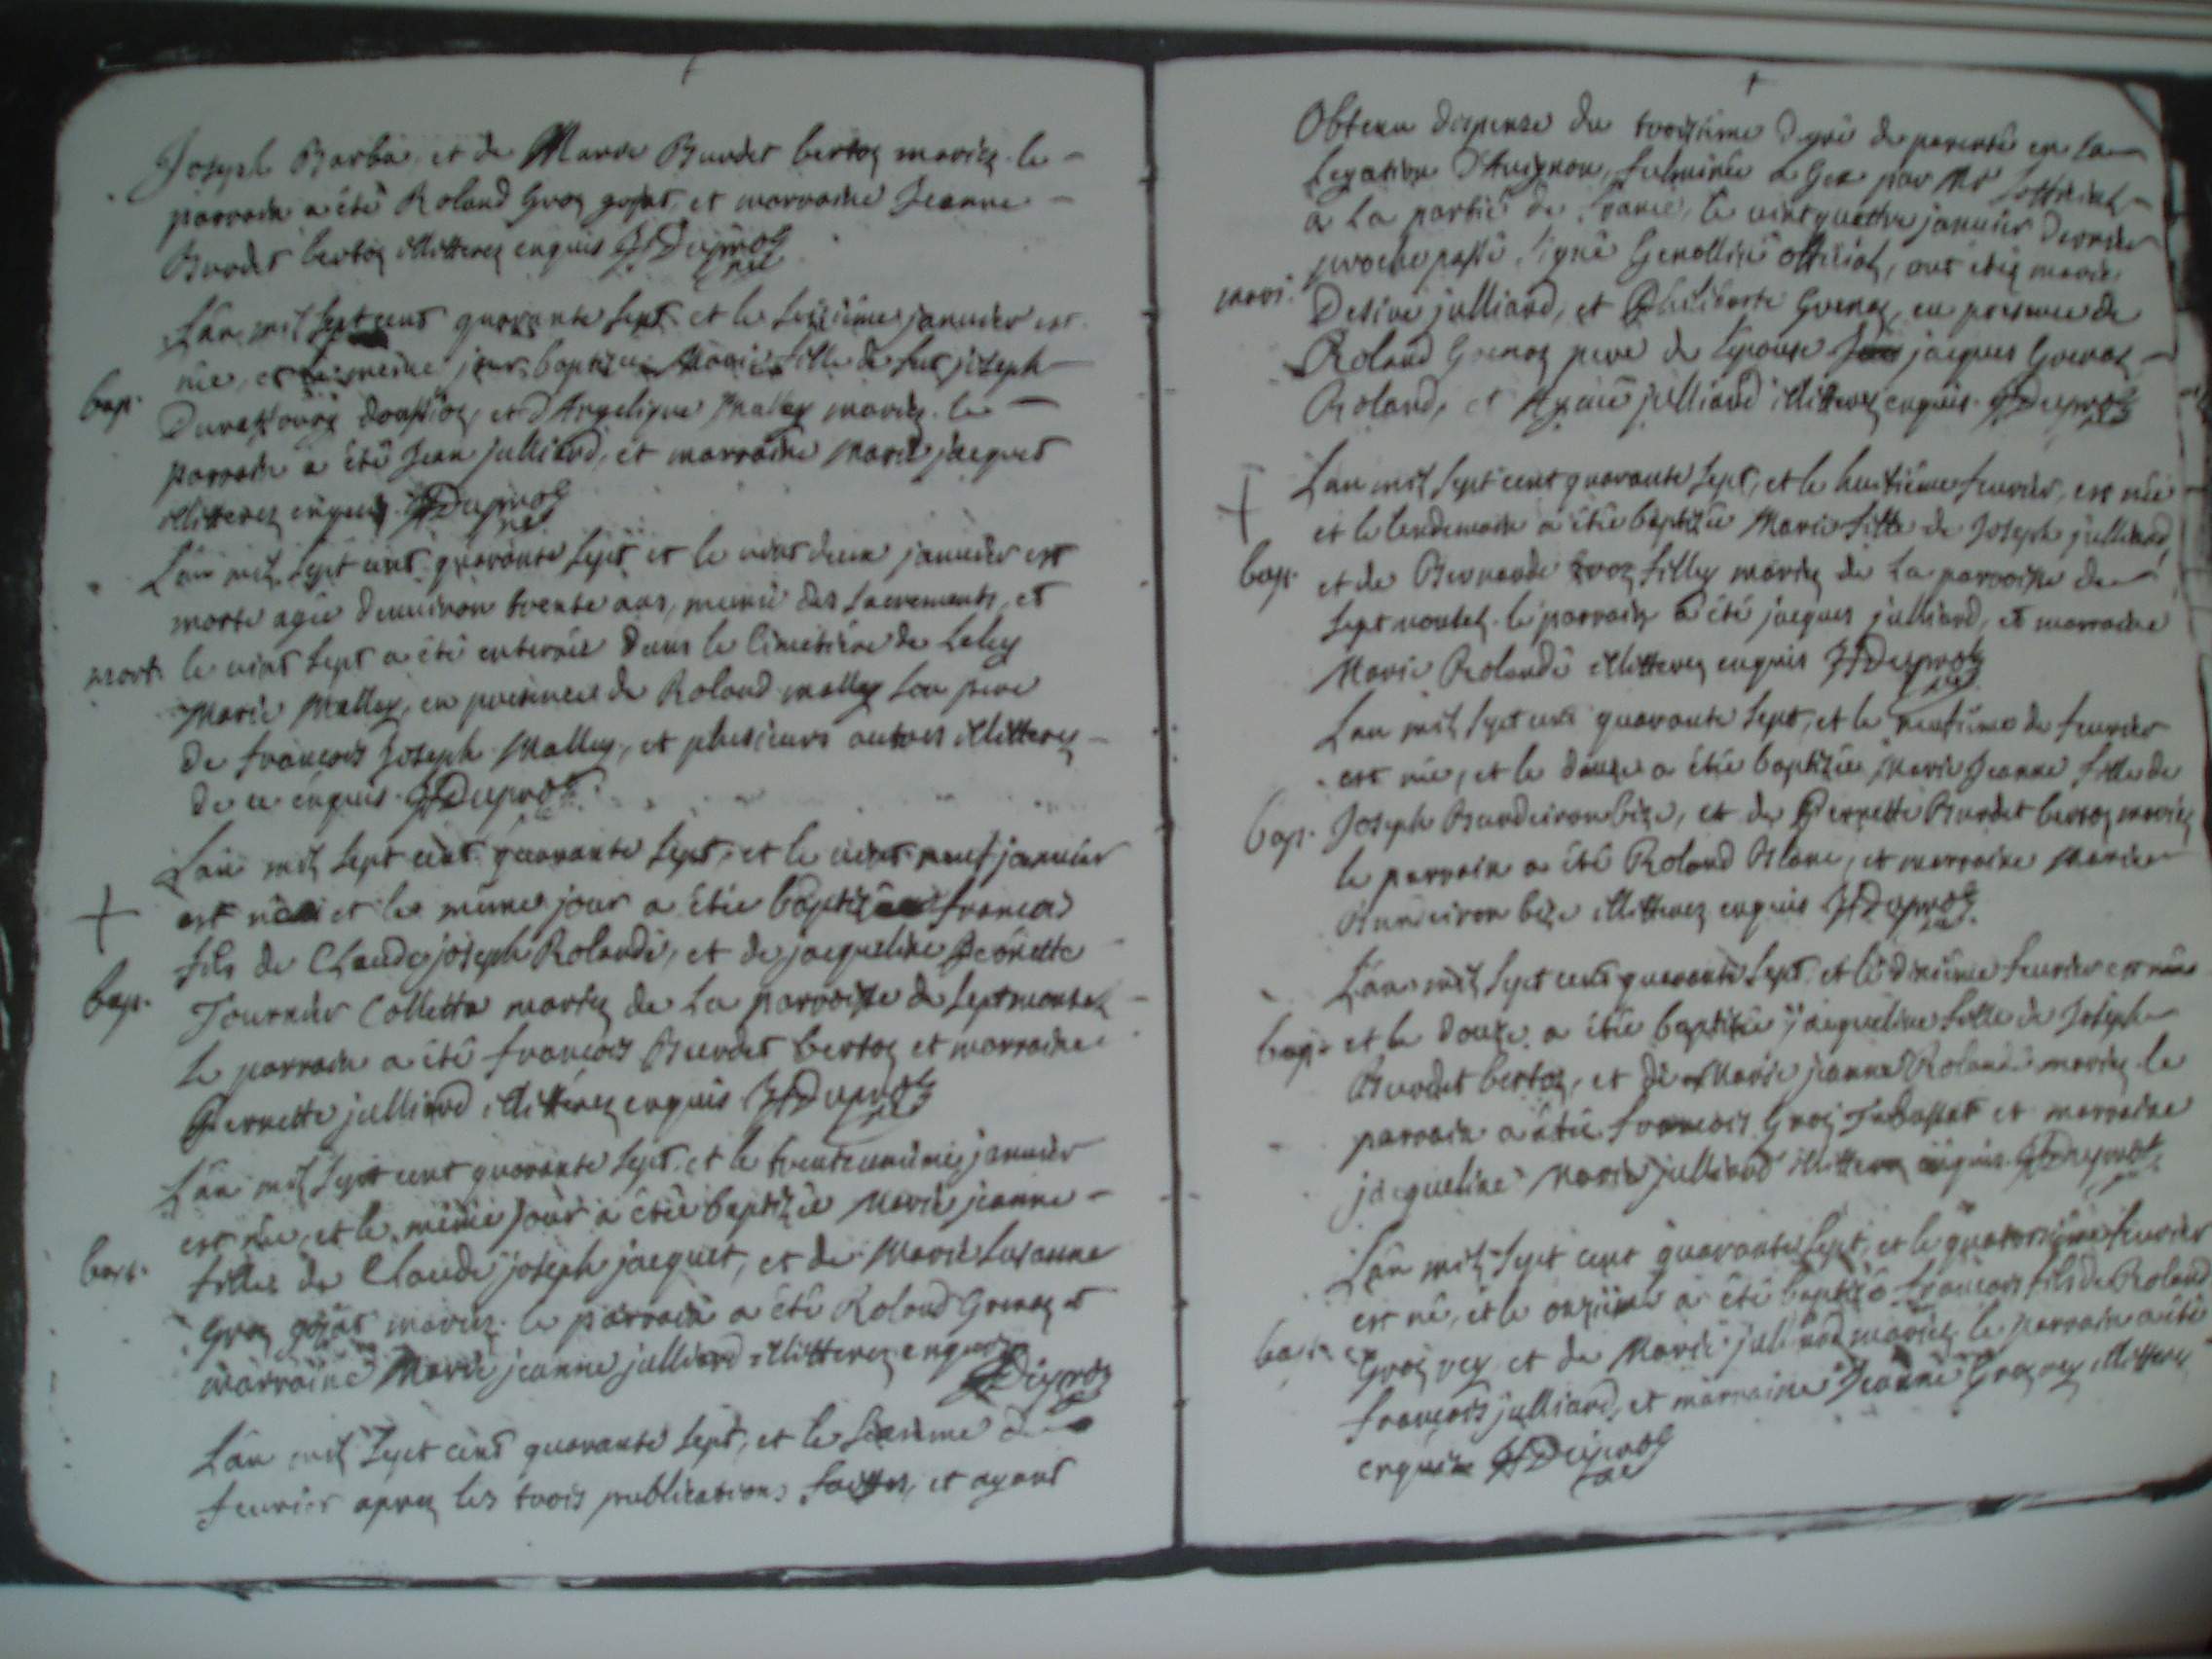 Joseph Barba, et de Marie Burdet bertoz mariez. le
parrain a été Roland Groz gojat, et marraine Jeanne
Burdet bertoz illitterez enquis JFDuproz
curé
L'an mil sept cent quarante sept et le seizième janvier est
née, et le même jour baptizée Marie fille de fut joseph
bap.
et d'Angelique Mallez mariez. le
parrain a été Jean julliard, et marraine Marie jacquet
illitterez enquis. JFDuproz
curé
L'an mil sept cent quarante sept et le vint deux janvier est
morte agée d'environ trente ans, munie des sacrements, et
mort. le vint sept a été enterrée dans le cimetière de Lelez
Marie Mallez, en presence de Roland mallez son pere
de françois Joseph Mallez, et plusieurs autres illitterez
de ce enquis. JFDuproz
L'an mil sept cent quarante sept, et le vint neuf janvier
est né et le même jour a été baptizé francois
fils de Claude joseph Rolandé, et de jacqueline Pernette
bap.
Tournier Colletta mariez de la parroisse de septmontel
le parrain a été francois Burdet bertoz et marraine
Pernette julliard illitterez enquis JFDuproz
curé
L'an mil sept cent quarante sept, et le trenteunième janvier
est née, et le même jour a étée baptizée Marie jeanne
bap.
fille de Claude joseph jacquet, et de Marie Susanne
Groz gojat mariez. le parrain a été Roland Grenoz et
marraine Marie jeanne julliard illitterez enquis
JFDuproz
L'an mil sept cent quarante sept, et le sixième de
fevrier aprez les trois publications faittes, et ayant
Obtenu dispense du troisième degré de parenté en la
legation d'Avignon, fulminée a Gex par Mr
a la partie de france, le vintquattre janvier dernier
proche passé, signé official, ont étéz mariez
mari.
Desiré julliard, et Philiberte Grenoz, en presence de
Roland Grenoz pere de l'epouse jacques Grenoz
Roland, et Aymé julliard illitterez enquis. JFDuproz
curé
L'an mil sept cent quarante sept, et le huitième fevrier, est née
et le lendemain a étée baptizée Marie fille de Joseph julliard
bap. et de Bernarde Groz fillez mariez de la parroisse de
septmontel. le parrain a été jacques julliard, et marraine
Marie Rolandé illitterez enquis JFDuproz
curé
L'an mil sept cent quarante sept, et le neufième de fevrier
est née, et le douze a étée baptizée Marie Jeanne fille de
bap. Joseph Burdeironbize, et de Pernette Burdet bertoz mariez
le parrain a été Roland Blanc, et marraine Marie
Burdeiron bize illitterez enquis JFDuproz
curé
L'an mil sept cent quarante sept, et le dixième fevrier est née
bap. et le douze a étée baptizée jacqueline fille de Joseph
Burdet bertoz, et de Marie jeanne Rolandé mariez. le
parrain a été francois Groz et marraine
jacqueline Marie julliard illitterez enquis. JFDuproz
L'an mil sept cent quarante sept, et le quatorzième fevrier
est né, et le a été baptizé francois fils de Roland
Groz rey et de Marie julliard mariez. le parrain a été
francois julliard, et marraine Jeanne Groz rey illitterez
enquis JFDuproz
curé